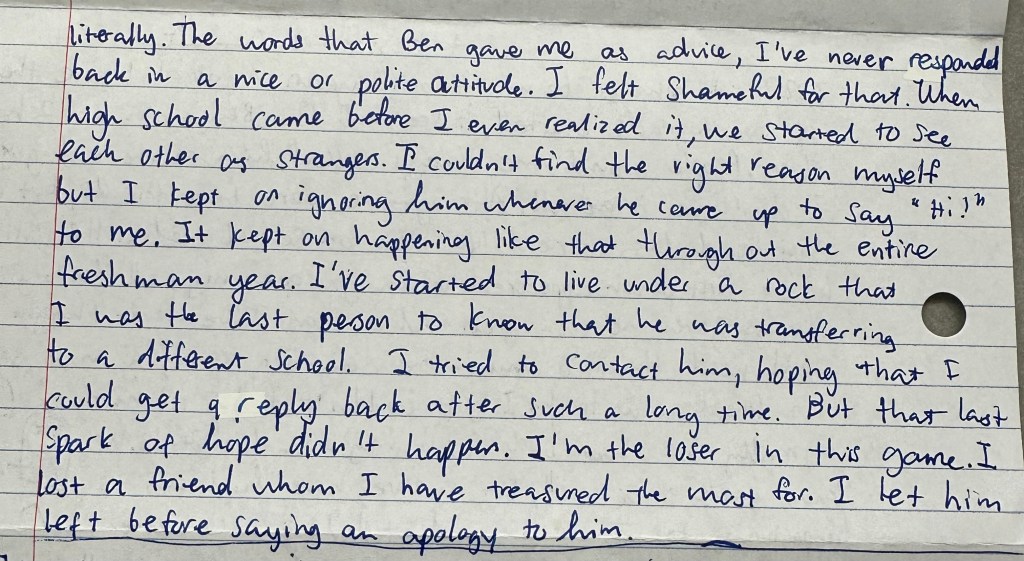 literally. The words that Ben gave me as advice, I've never responded
back in a nice or polite attitude. I felt Shameful for that. When
high school came before I even realized it, we started to see
each other as strangers. I couldn't find the right reason myself
but I kept on ignoring him whenever he came up to say "Hi!"
to me. It kept on happening like that through out the entire
freshman year. I've started to live under a rock that
I was the last person to know that he was transferring
to a different school. I tried to contact him, hoping that I
could get a reply back after such a long time. But that last
spark of hope didn't happen. I'm the loser in this game. I
lost a friend whom I have treasured the most for. I let him
left before saying an apology to him.